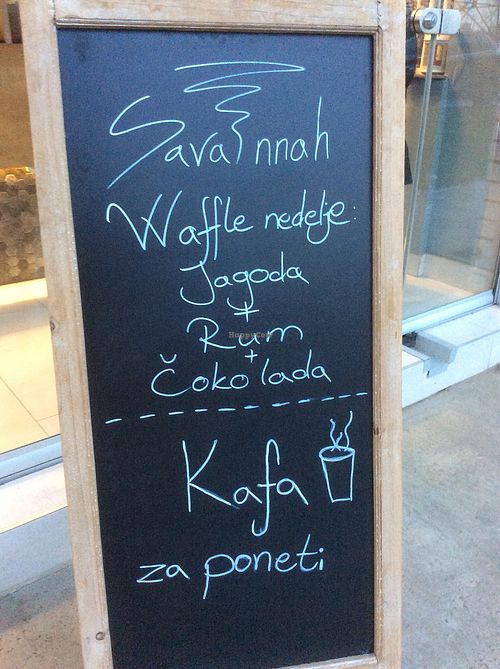 Savannah
Waffle nedelje:
Jagoda
+
Rum
+
Čokolada
Kafa
za poneti
HappyCow